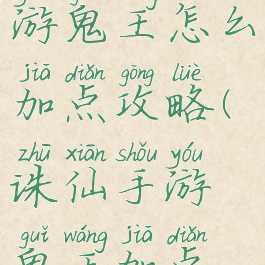 游鬼王怎么
jiā diǎn gōng lüè
加点攻略(
zhū xiān shǒu yóu
诛仙手游
guǐ wáng jiā diǎn
鬼王加点